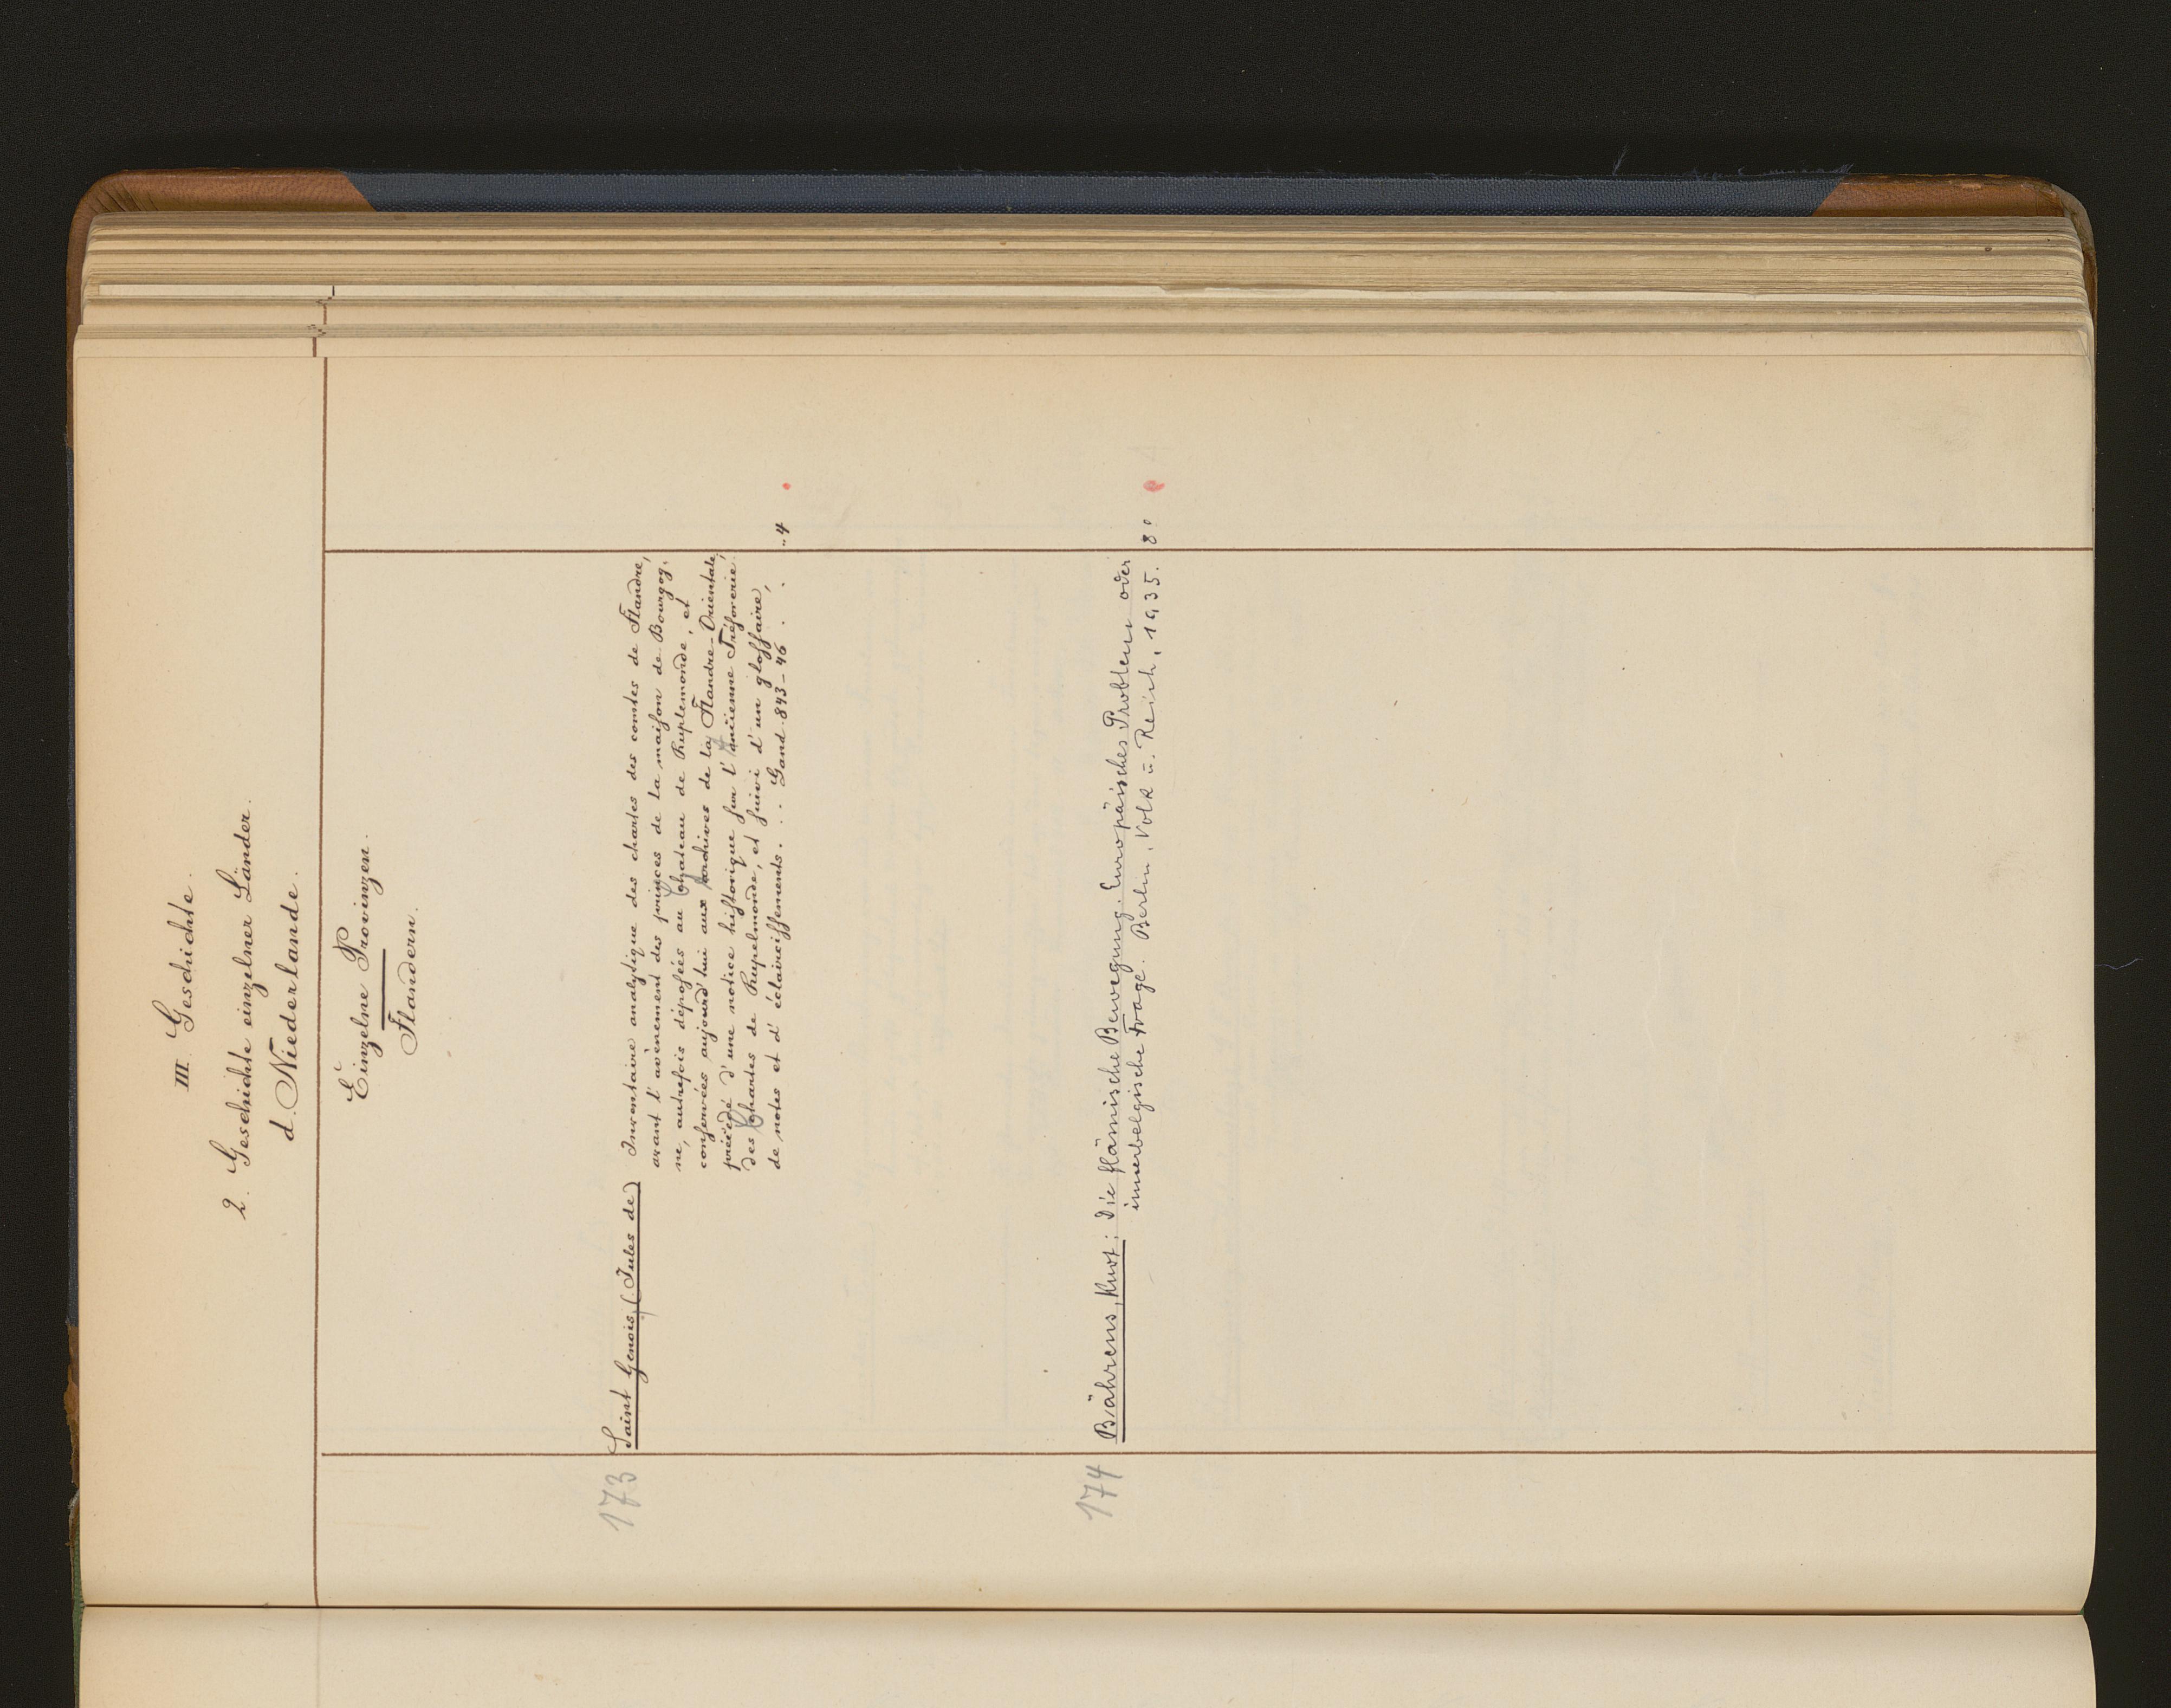 III. Geschichte.
2. Geschichte einzelner Länder.
d. Niederlande.
Einzelne Provinzen.
Flandern.
173 Saint Genois, (Jules de) Inventaire analytique des chartes des comtes de Flandre,
avant l'avènement des princes de la maison de Bourgog-
ne, autrefois déposées au Chateau de Ruplemonde, et
conservées aujourd'hui aux Archives de la Flandre-Orientale,
précédé d'une notice historique sur l'ancienne Trésorerie
des Chartes de Rupelmonde, et suivi d'un glossaire,
de notes et d'éclaircissements. . . Gand 843-46 . . . 4
174 Bährens, Kurt: Die flämische Bewegung. Europäisches Problem oder
innerbelgische Frage. Berlin, Volk u. Reich, 1935. 8°